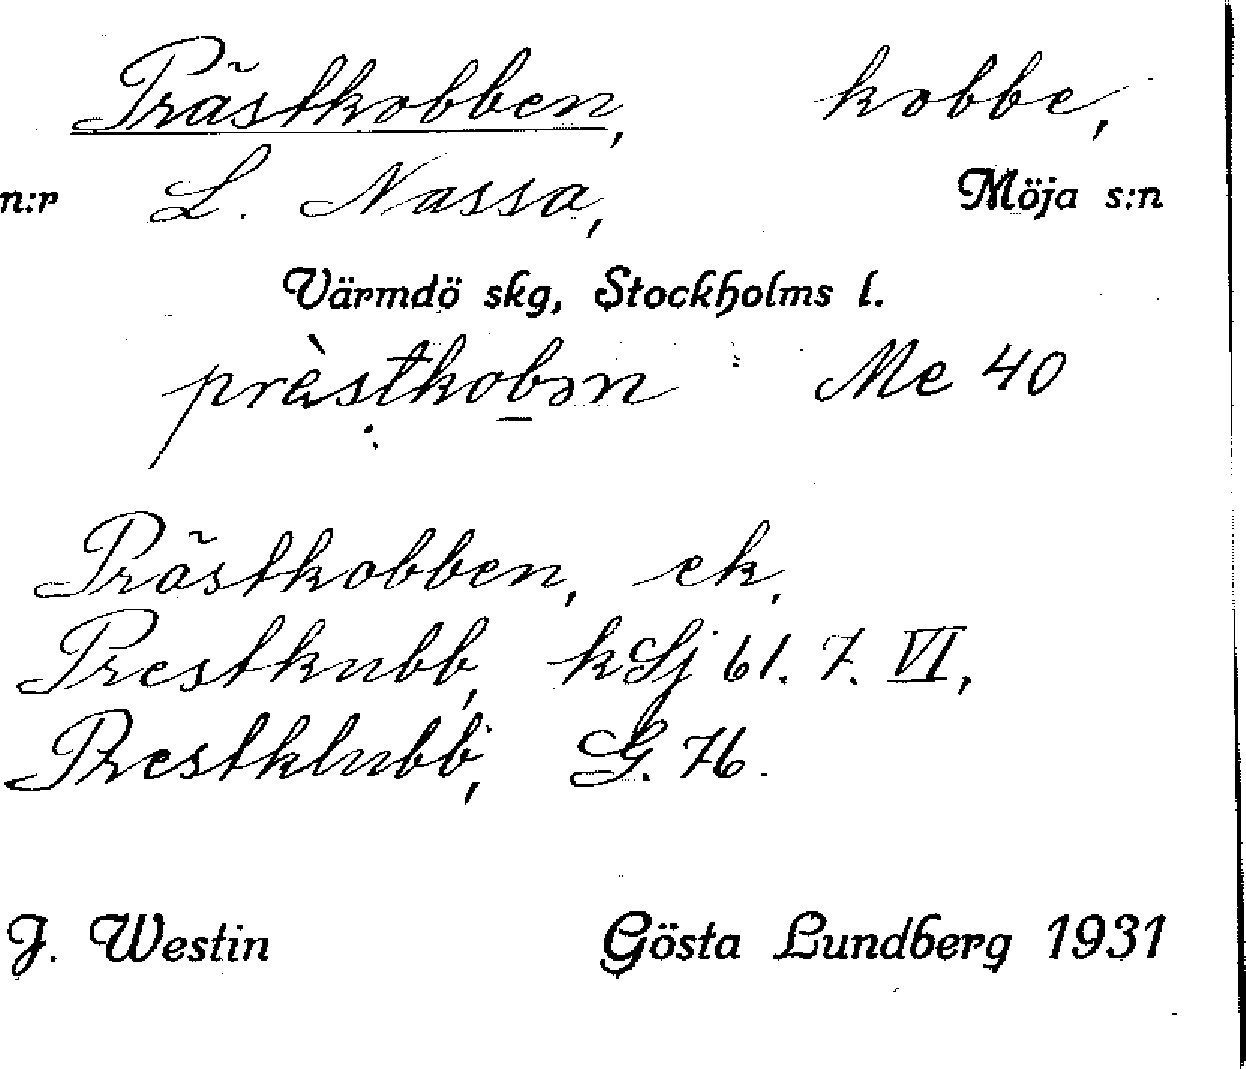 Prästkobben, kobbe,
n:r L. Nassa, Möja s:n
Värmdö skg, Stockholms l.
prèstkobən Me 40
Prästkobben, ek.
Prestkubb, kSj 61. 7. VI,
Prestklubb, G. 76.
J. Westin Gösta Lundberg 1931